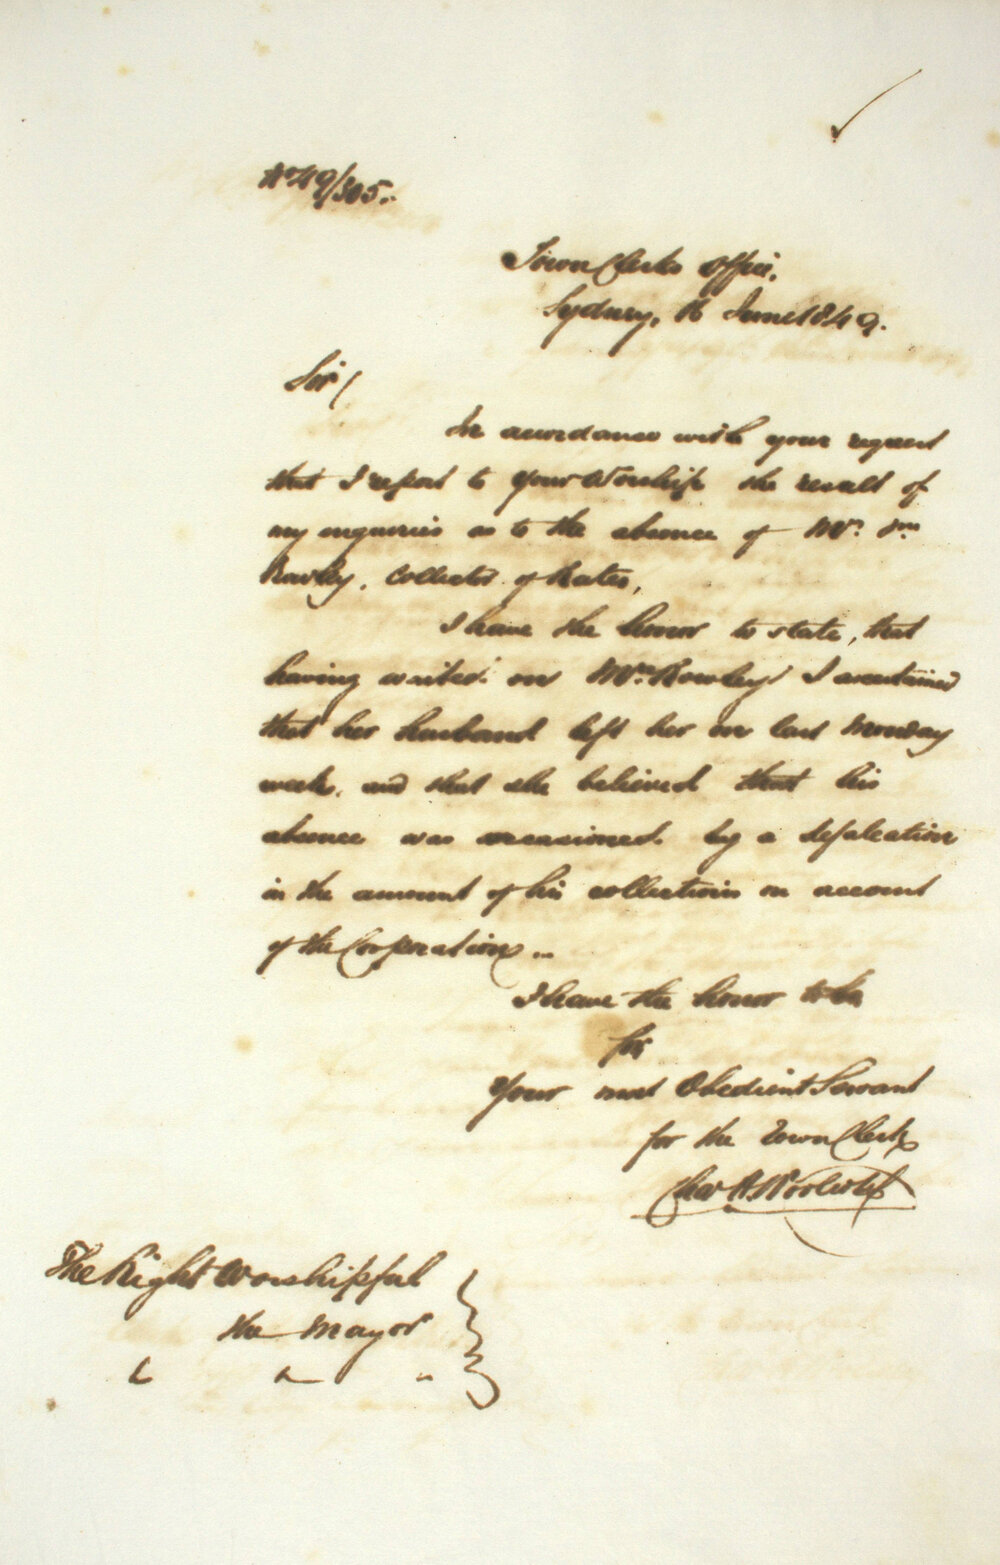 No 49/305.
Town Clerks Office.
Sydney, 16 June 1849.
Sir/
In accordance with your request
that I report to Your Worship the result of
my enquiries as to the absence of Mr. Wm
Rowley, Collector of Rates,
I have the honor to state, that
having waited on Mrs. Rowley I ascertained
that her husband left her on last Monday
week, and that she believed that his
absence was occasioned by a defalcation
in the amount of his collections on account
of the Corporation ..
I have the honor to be
Sir
Your most Obedient Servant
for the Town Clerk
Chas H. Woolcott
The Right Worshipful
the Mayor